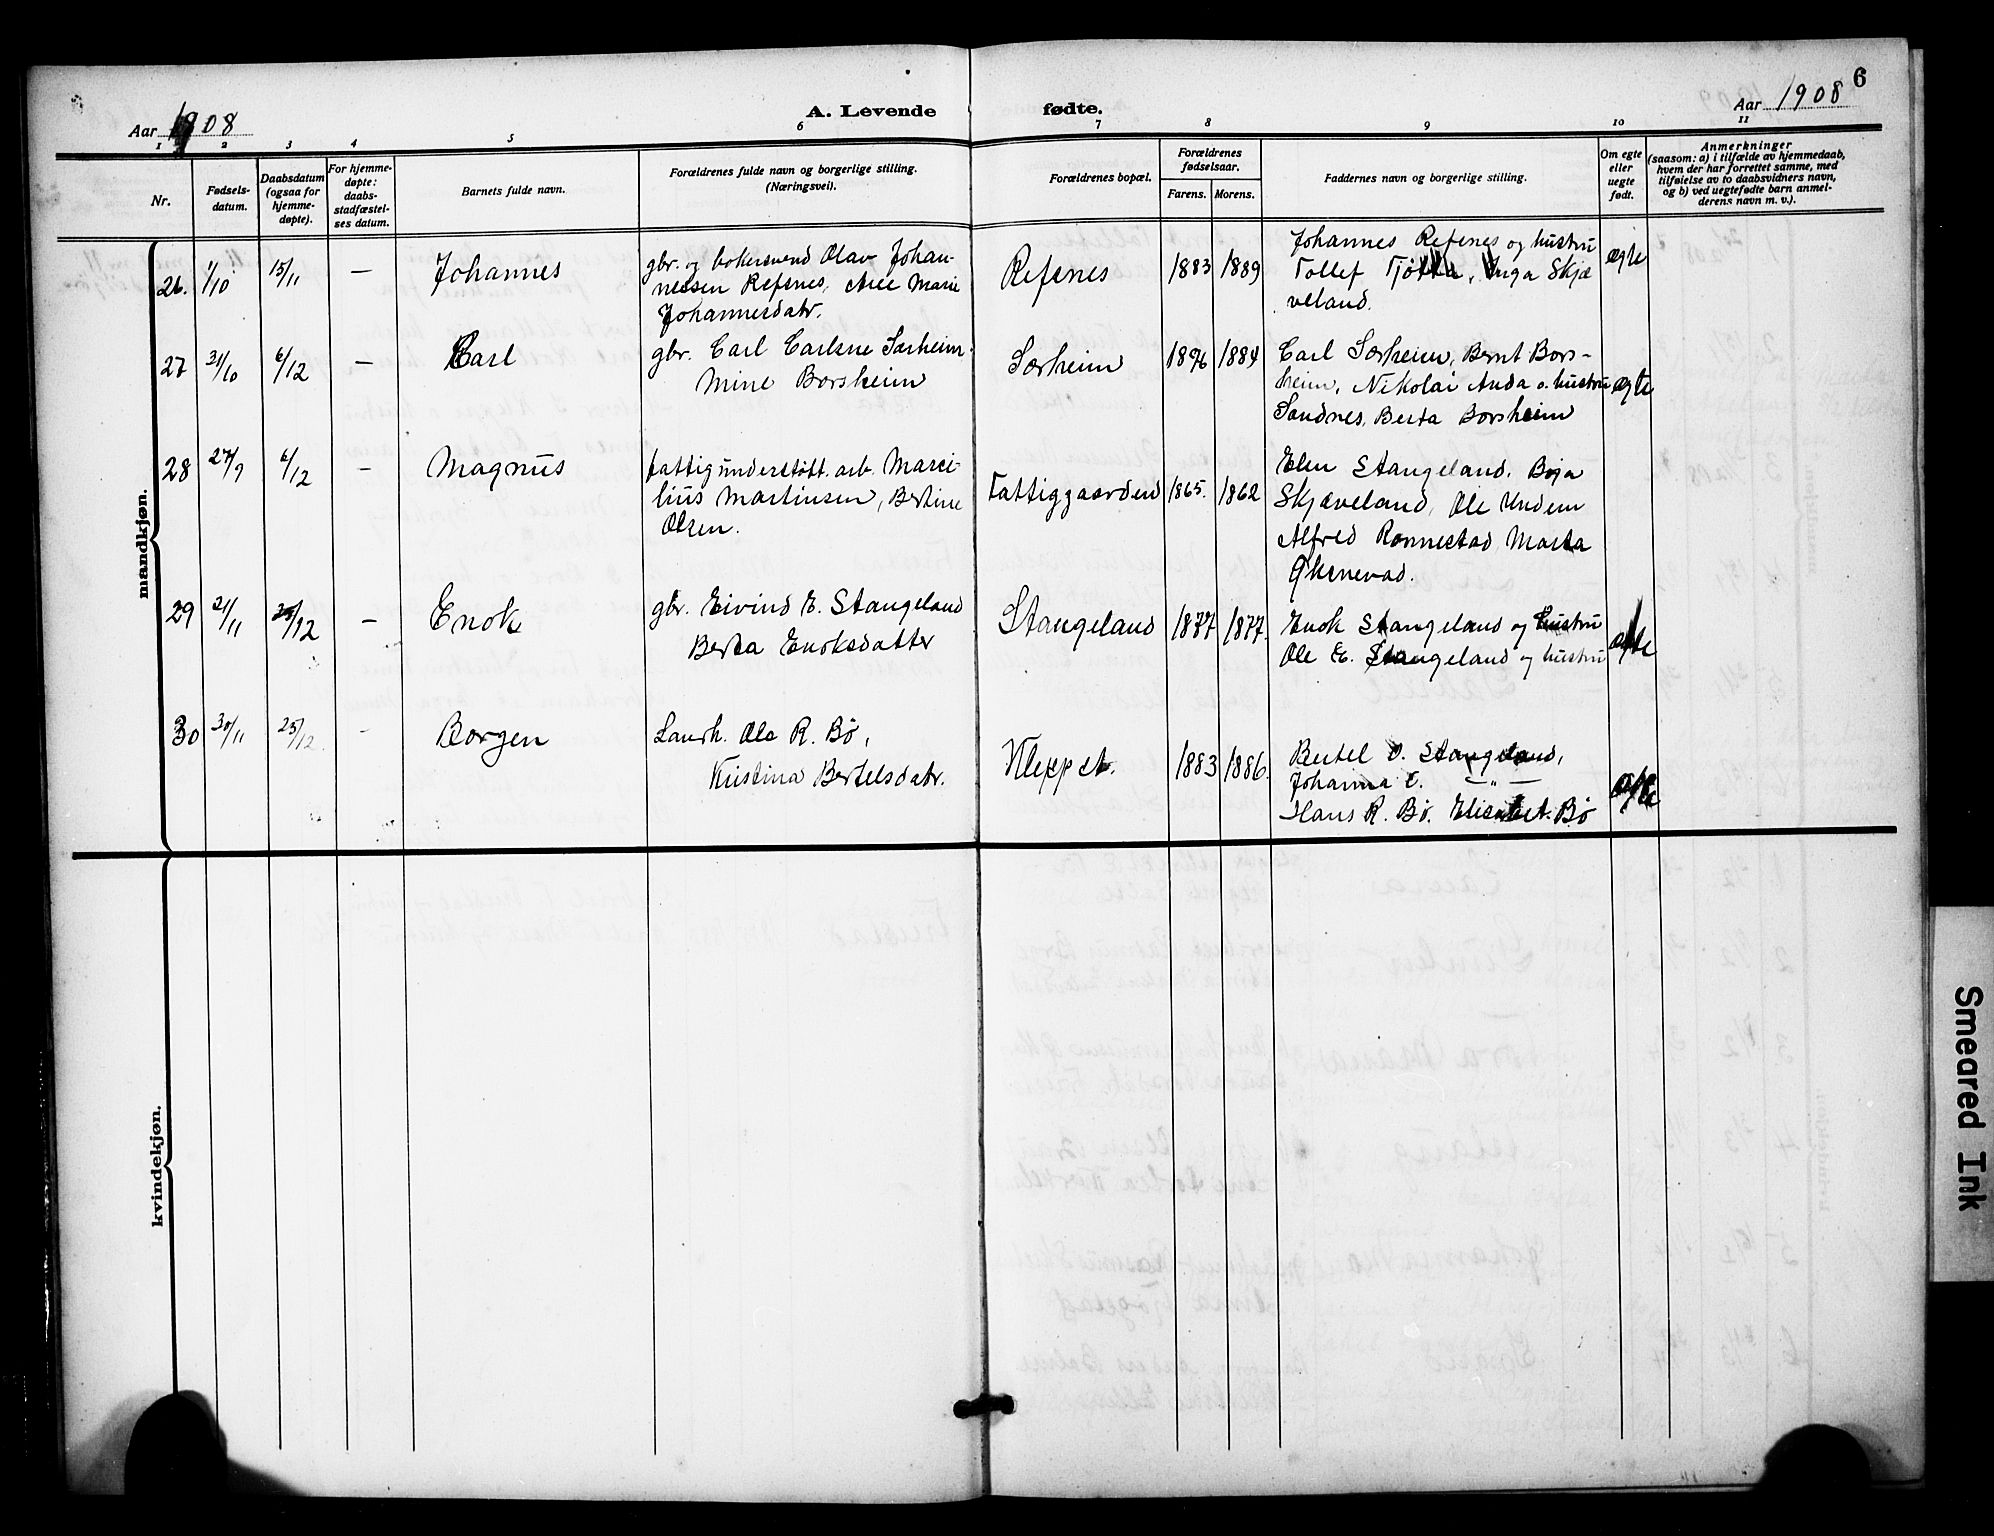 6
Aar 1908
A. Levende fødte.
Aar 1908
1 2 3 4 5 6 7 8 9 10 11
Nr.
Fødsels-
datum.
Daabsdatum
(ogsaa for
hjemme-
døpte).
For hjemme-
døpte:
daabs-
stadfæstel-
ses datum.
Barnets fulde navn.
Forældrenes fulde navn og borgerlige stilling.
(Næringsvei).
Forældrenes bopæl.
Forældrenes
fødselsaar.
Farens. Morens.
Faddernes navn og borgerlige stilling.
Om egte
eller
uegte
født.
Anmerkninger
(saasom: a) i tilfælde av hjemmedaab,
hvem der har forrettet samme, med
tilføielse av to daabsvidners navn,
og b) ved uegtefødte barn anmel-
derens navn m. v.).
mandkjøn.
26. 1/10 15/11 — Johannes
gbr. og Olav Johan-
nessen Refsnes, Marie
Johannesdatr.
Refsnes 1883 1889
Johannes Refsnes og hustru
Tollef Tjøtta, Inga Skjæ
veland.
egte
27 31/10 6/12 — Carl
gbr. Carl Carlsne Særheim
Mine Borsheim
Særheim 1876 1884
Carl Særheim, Bernt Bors-
heim, Nikolai Anda o. hustru
Sandnes, Berta Borsheim
egte
28 27/9 6/12 — Magnus
fattigunderstøtt. arb. Marci-
lius Martinsen, Bertine
Olsen.
Fattiggaarden 1865. 1862
Elen Stangeland.
Skjæveland, Ole Undem
Alfred Rønnestad Marta
29 21/11 25/12 — Enok
gbr. Eivind E. Stangeland
Berta Enoksdatter
Stangeland 1877 1877.
Enok Stangeland og hustru
Ole E. Stangeland og hustru
egte
30 30/11 25/12 - Borgen
Landh. Ole R. Bø,
Kristina Bertelsdatr.
Kleppet. 1883 1886.
Bertel O. Stangeland,
Johanna E. — " —
Hans R. Bø. Elisabet Bø
egte
kvindekjøn.
Smeared Ink